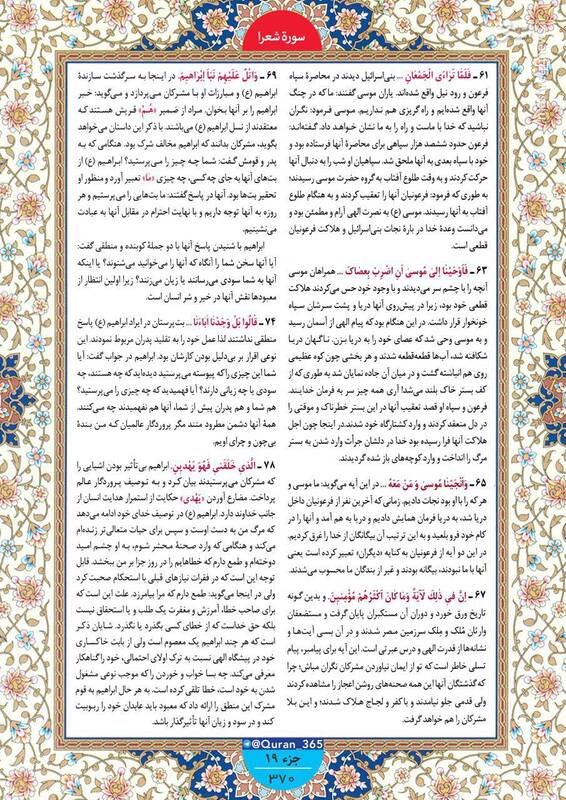 سورة شعرا
۶۱ ـ فَلَمَّا تَرَاءَى الْجَمْعَانِ ... بنی‌اسرائیل دیدند در محاصرهٔ سپاه
فرعون و رود نیل واقع شده‌اند. یاران موسی گفتند: ما که در چنگ
آنها واقع شده‌ایم و راه گریزی هم نداریم. موسی فرمود: نگران
نباشید که خدا با ماست و راه را به ما نشان خواهد داد. گفته‌اند:
فرعون حدود ششصد هزار سپاهی برای محاصرهٔ آنها فرستاده بود و
خود با سپاه بعدی به آنها ملحق شد. سپاهیان او شب را به دنبال آنها
حرکت کردند و به وقت طلوع آفتاب به گروه حضرت موسی رسیدند؛
به طوری که فرمود: فرعونیان آنها را تعقیب کردند و به هنگام طلوع
آفتاب به آنها رسیدند. موسی (ع) به نصرت الهی آرام و مطمئن بود و
می‌دانست وعدهٔ خدا در بارهٔ نجات بنی‌اسرائیل و هلاکت فرعونیان
قطعی است.
۶۳ ـ فَأَوْحَيْنَا إِلَىٰ مُوسَىٰ أَنِ اضْرِبْ بِعَصَاكَ ... همراهان موسی
آنچه را با چشم سر می‌دیدند و با وجود خود حس می‌کردند هلاکت
قطعی خود بود، زیرا در پیش‌روی آنها دریا و پشت سرشان سپاه
خونخوار قرار داشت. در این هنگام بود که پیام الهی از آسمان رسید
و به موسی وحی شد که عصای خود را به دریا بزن. ناگهان دریا
شکافته شد، آب‌ها قطعه‌قطعه شدند و هر بخشی چون کوه عظیمی
روی هم انباشته گشت و در میان آن جاده نمایان شد به طوری که از
کف بستر خاک بلند می‌شد! آری همه چیز سر به فرمان خدایند.
فرعون و سپاه او قصد تعقیب آنها در این بستر خطرناک و موقتی را
در دل منعقد کردند و وارد کشتارگاه خود شدند.در اینجا چون اجل
هلاکت آنها فرا رسیده بود خدا در دلشان جرأت وارد شدن به بستر
مرگ را انداخت و وارد کوچه‌های باز شده گردیدند.
۶۵ ـ وَأَنْجَيْنَا مُوسَىٰ وَ مَنْ مَعَهُ ... در این آیه می‌گوید: ما موسی و
هر که را با او بود نجات دادیم. زمانی که آخرین نفر از فرعونیان داخل
دریا شد، به دریا فرمان همایش دادیم و دریا به هم آمد و آنها را در
کام خود فرو بلعید و به این ترتیب آن بیگانگان از خدا را غرق کردیم.
در این دو آیه از فرعونیان به کنایه «دیگران» تعبیر کرده است یعنی
آنها با ما نبودند، بیگانه بودند و غیر از بندگان ما محسوب می‌شدند.
۶۷ ـ إِنَّ فِي ذَٰلِكَ لَآيَةً وَمَا كَانَ أَكْثَرُهُمْ مُؤْمِنِينَ. و بدین گونه
تاریخ ورق خورد و دوران آن مستکبران پایان گرفت و مستضعفان
وارثان مُلک و مِلک سرزمین مصر شدند و در آن بسی آیت‌ها و
نشانه‌ها از قدرت الهی و درس عبرتی است. این آیه برای پیامبر، پیام
تسلی خاطر است که تو از ایمان نیاوردن مشرکان نگران مباش؛ چرا
که گذشتگان آنها این همه صحنه‌های روشن اعجاز را مشاهده کردند
ولی قدمی جلو نیامدند و با کفر و لجاج هلاک شدند؛ و این بلا
مشرکان را هم خواهد گرفت.
۶۹ ـ وَاتْلُ عَلَيْهِمْ نَبَأَ إِبْرَاهِيمَ. در اینجا به سرگذشت سازندهٔ
ابراهیم (ع) و مبارزات او با مشرکان می‌پردازد و می‌گوید: خبر
ابراهیم را بر آنها بخوان. مراد از ضمیر «هُمْ» قریش هستند که
معتقدند از نسل ابراهیم (ع) می‌باشند. با ذکر این داستان می‌خواهد
بگوید، مشرکان بدانند که ابراهیم مخالف شرک بود. هنگامی که به
پدر و قومش گفت: شما چه چیز را می‌پرستید؟ ابراهیم (ع) از
بت‌های آنها به جای چه‌کسی، چه چیزی «مَا» تعبیر آورد و منظور او
تحقیر بت‌ها بود. آنها در پاسخ‌گفتند: ما بت‌هایی را می‌پرستیم و هر
روزه به آنها توجه داریم و با نهایت احترام در مقابل آنها به عبادت
می‌نشینیم.
ابراهیم با شنیدن پاسخ آنها با دو جملهٔ کوبنده و منطقی گفت:
آیا آنها سخن شما را آنگاه که آنها را می‌خوانید می‌شنوند؟ یا اینکه
آنها به شما سودی می‌رسانند یا زیان می‌زنند؟ زیرا اولین انتظار از
معبودها نقش آنها در خیر و شر انسان است.
۷۴ ـ قَالُوا بَلْ وَجَدْنَا آبَاءَنَا ... بت‌پرستان در ایراد ابراهیم (ع) پاسخ
منطقی نداشتند لذا عمل خود را به تقلید پدران مربوط نمودند. این
نوعی اقرار بر بی‌دلیل بودن کارشان بود. ابراهیم در جواب گفت: آیا
شما این چیزی را که پیوسته می‌پرستید دیده‌اید که چه هستند، چه
سودی یا چه زیانی دارند؟ آیا فهمیدید که چه چیزی را می‌پرستید؟
هم شما و هم پدران پیش از شما، آنها هم نفهمیدند چه می‌کنند.
همهٔ آنها دشمن مطرود منند مگر پروردگار عالمیان که من بندهٔ
بی‌چون و چرای اویم.
۷۸ ـ الَّذِي خَلَقَنِي فَهُوَ يَهْدِينِ. ابراهیم بی‌تأثیر بودن اشیایی را
که مشرکان می‌پرستیدند بیان کرد و به توصیف پروردگار عالم
پرداخت. مضارع آوردن «يَهْدِي» حکایت از استمرار هدایت انسان از
جانب خداوند دارد. ابراهیم (ع) در توصیف خدای خود ادامه می‌دهد
که مرگ من به دست اوست و سپس برای حیات متعالی‌تر زنده‌ام
می‌کند و هنگامی که وارد صحنهٔ محشر شوم، به او چشم امید
دوخته‌ام و طمع دارم که خطاهایم را در روز جزا بر من ببخشد. قابل
توجه این است که در فقرات نیازهای قبلی با استحکام صحبت کرد
ولی در اینجا می‌گوید: طمع دارم که مرا بیامرزد. علت این است که
برای صاحب خطا، آمرزش و مغفرت یک طلب و یا استحقاق نیست
بلکه حق خداست که از خطای کسی بگذرد یا نگذرد. شایان ذکر
است که هر چند ابراهیم یک معصوم است ولی از بابت خاکساری
خود در پیشگاه الهی نسبت به ترک اولای احتمالی، خود را گناهکار
معرفی می‌کند. چه بسا خواب و خوردن را که موجب نوعی مشغول
شدن به خود است، خطا تلقی کرده است. به هر حال ابراهیم به قوم
مشرک این منطق را ارائه داد که معبود باید عابدان خود را ربوبیت
کند و در سود و زیان آنها تأثیرگذار باشد.
@Quran_365
جزء ۱۹
۳۷۰